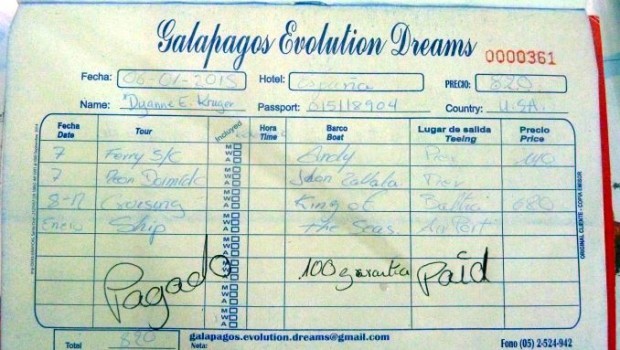 Galapagos Evolution Dreams 0000361
Fecha: 06-01-2015 Hotel: España PRECIO: 820
Name: Dyanne E. Kruger Passport: 615118904 Country: U.S.A.
Fecha Date Tour Incluyed Hora Time Barco Boat Lugar de salida Teeing Precio Price
7 Ferry S/C M W A Andy 140
7 M W A
8-12 M W A King of Baltra 680
Enero Ship M W A The Seas. Air Port
M W A
Pagado M W A 100 garantia Paid
M W A
M W A
Total 820 galapagos.evolution.dreams@gmail.com
Nota: Fono (05) 2-524-942
ORIGINAL CLIENTE - COPIA EMISOR